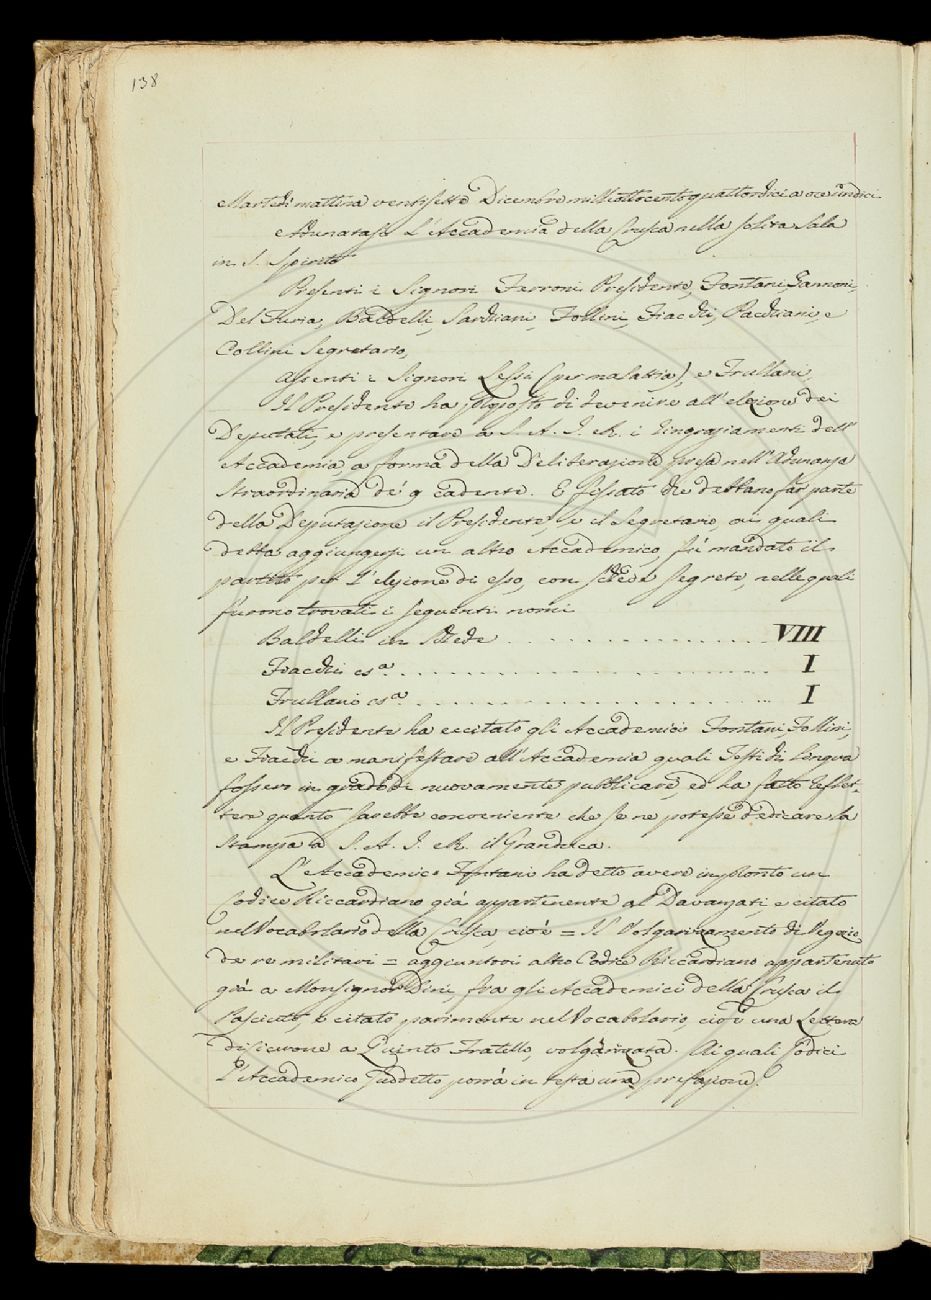 138
Martedì mattina ventisette Dicembre milleottocentoquattordici a ore undici
Adunatasi L'Accademia della Crusca nella solita Sala
in S. Spirito
Presenti i Signori Ferroni Presidente, Fontani, Zannoni,
Del Furia, Baldelli, Sarchiani, Follini, Fiacchi, Pacchiani, e
Collini Segretario,
Assenti i Signori Lessi (per malattia), e Frullani,
Il Presidente ha proposto di devenire all'elezione dei
Deputati, e presentare a S. A. I. e R. i ringraziamenti dell'
Accademia, a forma della Deliberazione presa nell'Adunanza
straordinaria de' 9 cadente. E fissato che debbano far parte
della Deputazione il Presidente, e il Segretario, ai quali
debba aggiungersi un altro Accademico fù mandato il
partito per L'elezione di esso, con schede segrete, nelle quali
furono trovati i seguenti nomi
Baldelli in Schede . . . . . . . . . . . . VIII
Fiacchi csa. . . . . . . . . . . . . . . . . I
Frullani csa. . . . . . . . . . . . . . . . . I
Il Presidente ha eccitato gli Accademici Fontani, Follini,
e Fiacchi a manifestare all'Accademia quali Testi di Lingua
fossero in grado di nuovamente pubblicare, ed ha fatto reflet-
tere quanto sarebbe conveniente che se ne potesse dedicare la
stampa a S. A. I. e R. il Granduca.
L'Accademico Fontani ha detto avere in pronto un
Codice Riccardiano già appartenente al Davanzati, e citato
nel Vocabolario della Crusca, cioè = Il Volgarizzamento di Vegezio
de re militari = aggiuntovi altro Codice Riccardiano appartenuto
già a Monsignor Dini, fra gli Accademici della Crusca il
Pasciuto, e citato parimente nel Vocabolario, cioè una Lettera
di Cicerone a Quinto Fratello, volgarizzata. Ai quali Codici
L'Accademico suddetto porrà in testa una prefazione.